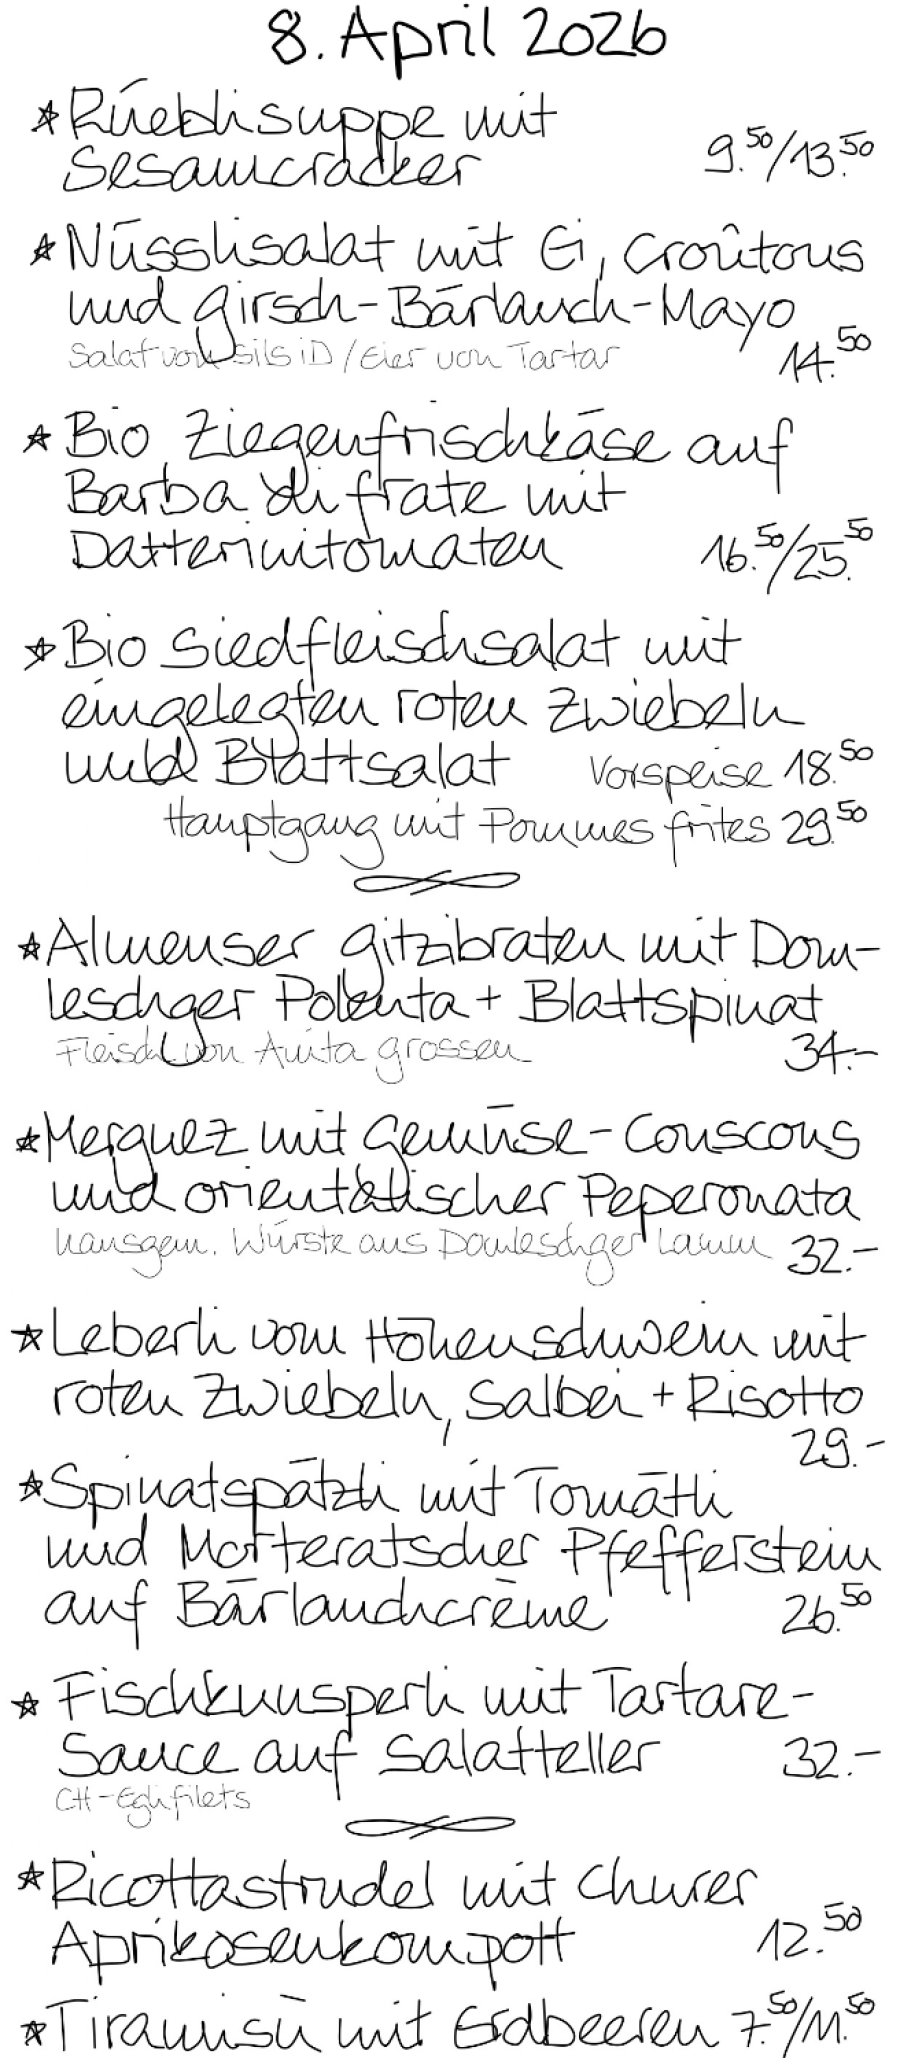 8. April 2026
* Rüeblisuppe mit
Sesamcracker 9.50/13.50
* Nüsslisalat mit Ei, Croûtons
und Girsch-Bärlauch-Mayo
Salat von Sils iD / Eier von Tartar 14.50
* Bio Ziegenfrischkäse auf
Barba di frate mit
Datterinitomaten 16.50/25.50
* Bio Siedfleischsalat mit
eingelegten roten Zwiebeln
und Blattsalat Vorspeise 18.50
Hauptgang mit Pommes frites 29.50
* Almenser Gitzibraten mit Dom-
leschger Polenta + Blattspinat
Fleisch von Anita Grossen 34.-
* Merguez mit Gemüse-Couscous
und orientalischer Peperonata
hausgem. Würste aus Domleschger Lamm 32.-
* Leberli vom Höhenschwein mit
roten Zwiebeln, Salbei + Risotto
29.-
* Spinatspätzli mit Tomätli
und Morteratscher Pfefferstein
auf Bärlauchcrème 26.50
* Fischknusperli mit Tartare-
Sauce auf Salatteller 32.-
CH-Eglifilets
* Ricottastrudel mit Churer
Aprikosenkompott 12.50
* Tiramisù mit Erdbeeren 7.50/11.50